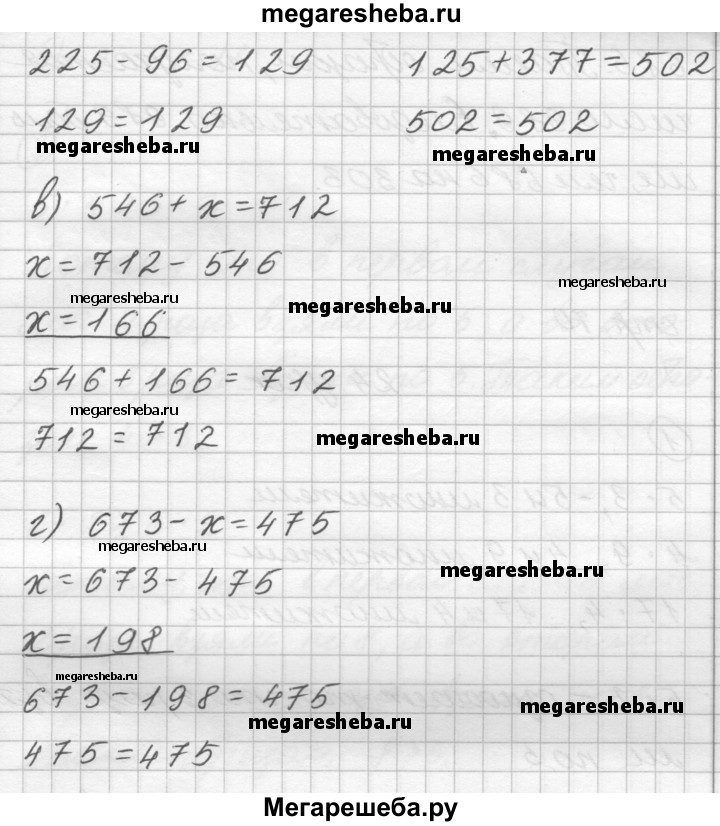 megaresheba.ru
225 - 96 = 129 125 + 377 = 502
129 = 129 502 = 502
megaresheba.ru megaresheba.ru
в) 546 + x = 712
x = 712 - 546
megaresheba.ru megaresheba.ru megaresheba.ru
x = 166
546 + 166 = 712
megaresheba.ru
712 = 712 megaresheba.ru
г) 673 - x = 475
megaresheba.ru
x = 673 - 475 megaresheba.ru
x = 198
megaresheba.ru
673 - 198 = 475 megaresheba.ru
megaresheba.ru
475 = 475
Мегарешеба.ру